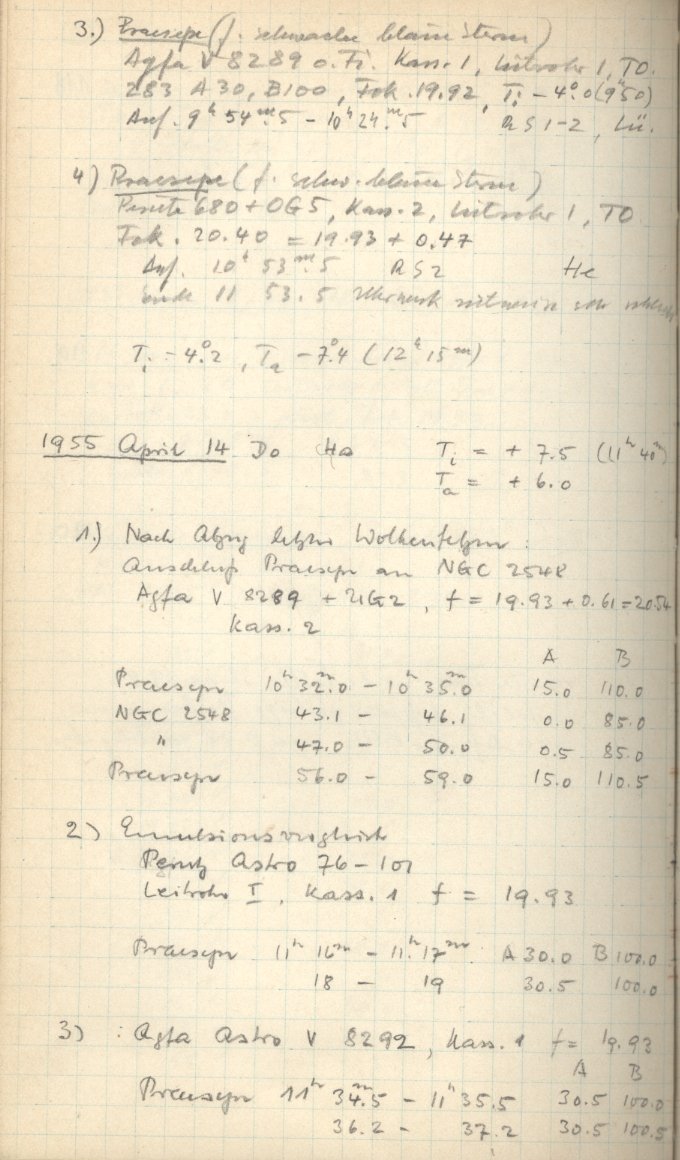 3.) Praesepe (f. schwache blaue Sterne)
Agfa V 8289 o. Fi. Kass. 1, Leitrohr 1, TO.
283 A 30, B 100, Fok. 19.92, Ti – 4°.0 (9h50)
Anf. 9h 54m.5 – 10h 24m.5 RS 1–2, Lü.
4) Praesepe (f. schw. blaue Sterne)
680 + OG5, Kass. 2, Leitrohr 1, TO
Fok. 20.40 = 19.93 + 0.47
Anf. 10h 53m.5 RS 2 He
Ende 11 53.5 Uhrwerk zeitweise sehr
Ti – 4°.2, Ta – 7°.4 (12h 15m)
1955 April 14 Do Ha Ti = + 7.5 (11h 40m)
Ta = + 6.0
1.) Nach Abzug letzter Wolkenfetzen:
Anschluß Praesepe an NGC 2548
Agfa V 8289 + UG2, f = 19.93 + 0.61 = 20.54
Kass. 2
A B
Praesepe 10h 32m.0 – 10h 35m.0 15.0 110.0
NGC 2548 43.1 – 46.1 0.0 85.0
" 47.0 – 50.0 0.5 85.0
Praesepe 56.0 – 59.0 15.0 110.5
2) Emulsionsvergleich
Perutz Astro 76–101
Leitrohr I, Kass. 1 f = 19.93
Praesepe 11h 16m – 11h 17m A 30.0 B 100.0
18 – 19 30.5 100.0
3) : Agfa Astro V 8292, Kass. 1 f = 19.93
A B
Praesepe 11h 34m.5 – 11h 35.5 30.5 100.0
36.2 – 37.2 30.5 100.5